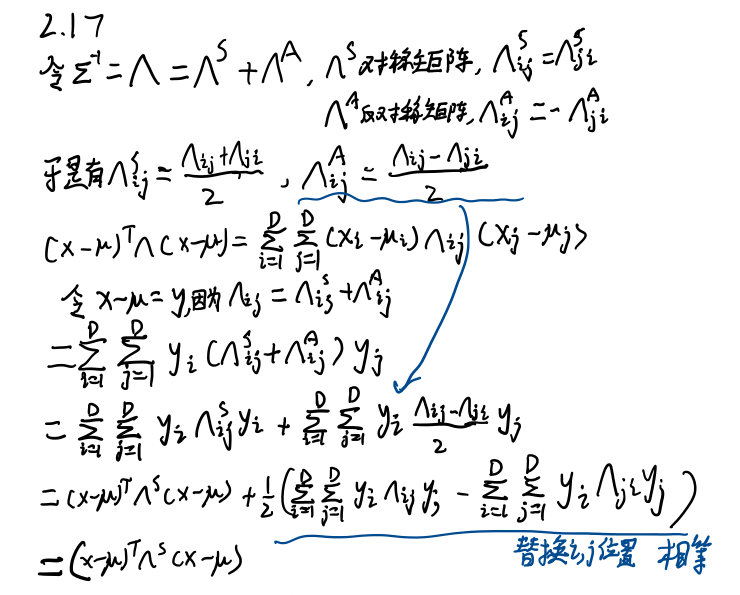 2.17
令 Σ⁻¹ = Λ = Λ^S + Λ^A, Λ^S 对称矩阵, Λ^S_{ij} = Λ^S_{ji}
Λ^A 反对称矩阵, Λ^A_{ij} = -Λ^A_{ji}
于是有 Λ^S_{ij} = \frac{Λ_{ij}+Λ_{ji}}{2}, Λ^A_{ij} = \frac{Λ_{ij}-Λ_{ji}}{2}
(x-μ)^T Λ (x-μ) = \sum_{i=1}^{D} \sum_{j=1}^{D} (x_i-μ_i) Λ_{ij} (x_j-μ_j)
令 x-μ=y, 因为 Λ_{ij} = Λ^S_{ij} + Λ^A_{ij}
= \sum_{i=1}^{D} \sum_{j=1}^{D} y_i (Λ^S_{ij} + Λ^A_{ij}) y_j
= \sum_{i=1}^{D} \sum_{j=1}^{D} y_i Λ^S_{ij} y_i + \sum_{i=1}^{D} \sum_{j=1}^{D} y_i \frac{Λ_{ij}-Λ_{ji}}{2} y_j
= (x-μ)^T Λ^S (x-μ) + \frac{1}{2} (\sum_{i=1}^{D} \sum_{j=1}^{D} y_i Λ_{ij} y_j - \sum_{i=1}^{D} \sum_{j=1}^{D} y_i Λ_{ji} y_j)
替换i,j位置 相等
= (x-μ)^T Λ^S (x-μ)